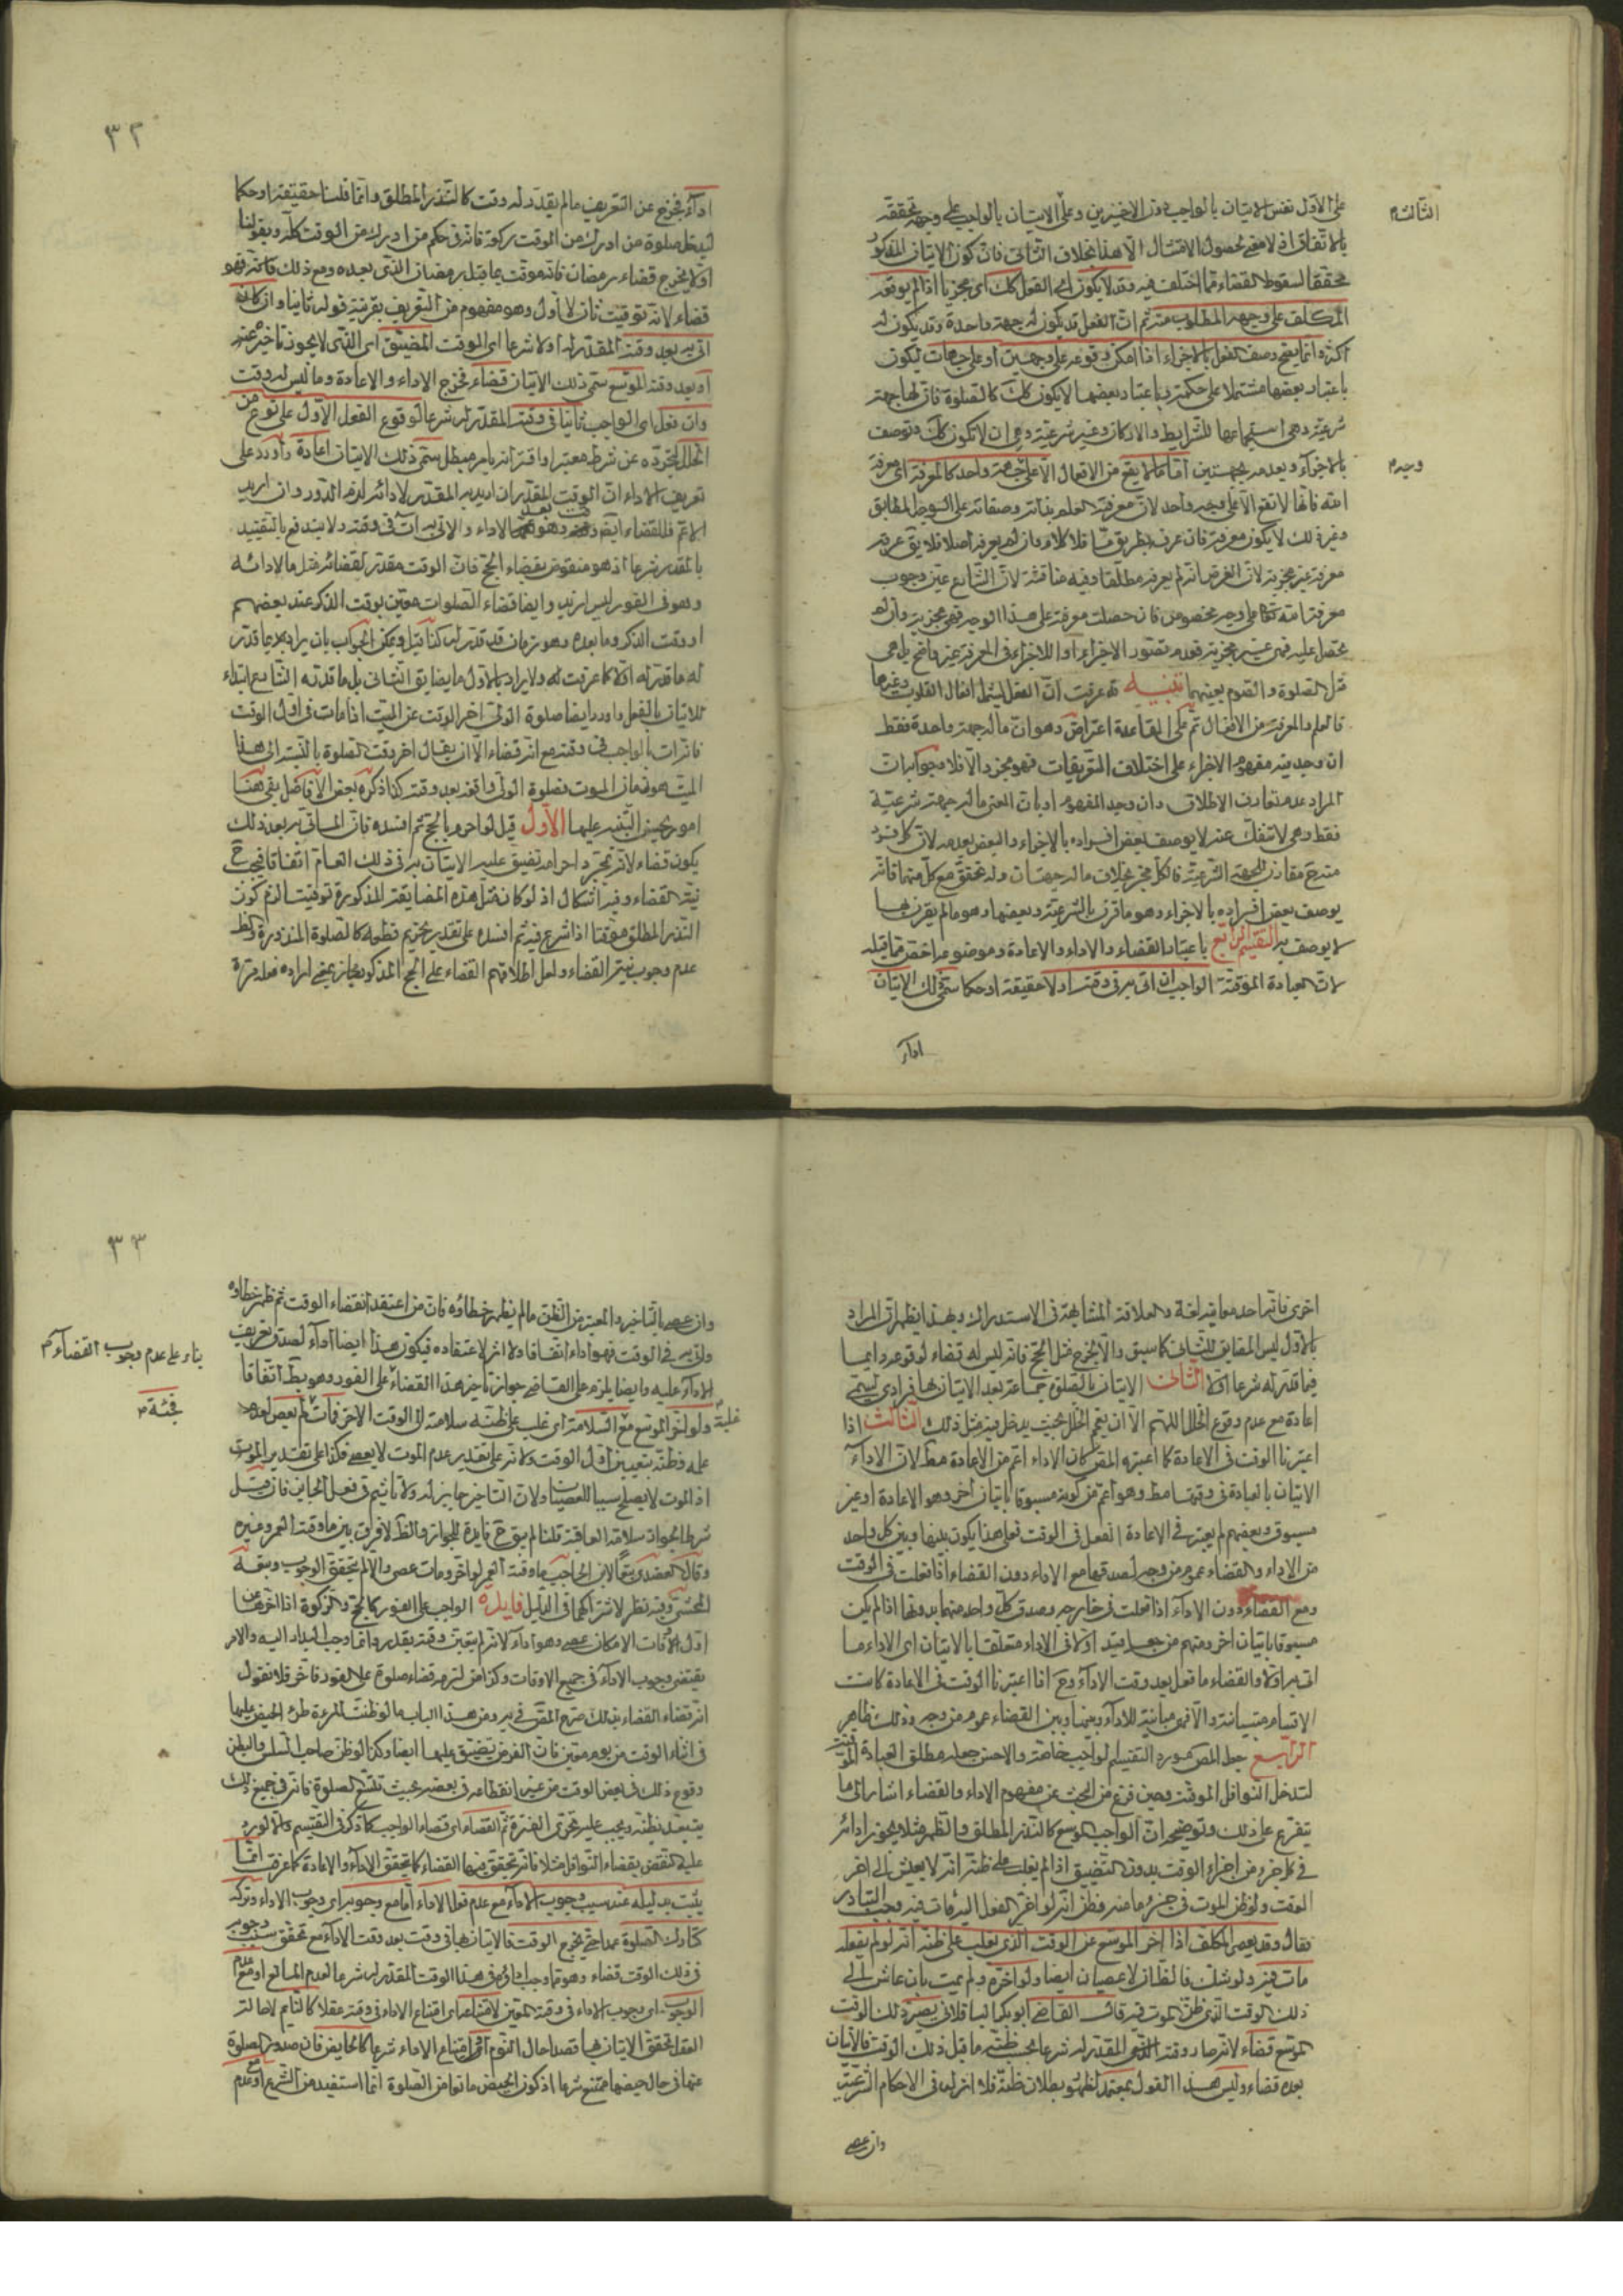 على الأول نفس الاتيان بالواجب دون الاخيرين وعلى الاتيان بالواجب على وجهه تحققه
الثالث
بالاتفاق اذ لا معنى لحصول الامتثال الا هذا بخلاف الثاني فان كون الاتيان المذكور
محققا لسقوط القضاء مما اختلف فيه وقد لا يكون اي الفعل كك اي مجزيا اذا لم يوقعه
المكلف على وجهه المطلوب منه ثم ان الفعل قد يكون له جهة واحدة وقد يكون له
اكثر وانما يصح وصف الفعل بالاجزاء اذا امكن وقوعه على وجهين او على جهات ليكون
باعتبار بعضها مشتملا على حكمة وباعتبار بعضها لا يكون كك كالصلوة فان لها جهة
شرعية وهي استجماعها للشرايط والاركان وغير شرعية وهي ان لا تكون كك وتوصف
بالاجزاء وبعدمه بجهتين اما ما لا يقع من الافعال الا على جهة واحد كالمعرفة اي معرفة
وجه
الله فانها لا تقع الا على وجه واحد لان معرفته العلم بذاته وصفاته على الوجه المطابق
وغير ذلك لا يكون معرفة فان عرف بطريق ما فلا كلام وان لم يعرف اصلا فلا يق عرفه
معرفة غير مجزية لان الفرض انه لم يعرفه مطلقا وفيه مناقشة لان الشارع عين وجوب
معرفة الله تعالى على وجه مخصوص فان حصلت معرفة على هذا الوجه فهي مجزية وان لم
تحصل عليه فهي غير مجزية فعدم تصور الاجزاء او اللااجزاء في المعرفة غير واضح بل هي
مثل الصلوة والصوم بعينهما تنبيه قد عرفت ان الفعل يشمل افعال القلوب وغيرها
فالعلم والمعرفة من الافعال ثم على القاعدة اعتراض وهو ان ما له جهة واحدة فقط
ان وجد فيه مفهوم الاجزاء على اختلاف التعريفات فهو مجز والا فلا وجوابه ان
المراد عدم تعارف الاطلاق وان وجد المفهوم او بان المعنى ما له جهة شرعية
فقط وهي لا تنفك عنه لا يوصف بعض افراده بالاجزاء والبعض بعدمه لان كل فرد
منه ح مقارن للجهة الشرعية فالكل مجز بخلاف ما له جهتان وله تحقق مع كل منهما فانه
يوصف بعض افراده بالاجزاء وهو ما قرن بالشرعية وبعضها وهو ما لم يقرن بها
لا يوصف به التقسيم الرابع باعتبار القضاء والاداء والاعادة وموضوعه اخص مما قبله
لان العبادة الموقتة الواجب ان اتي به في وقته اولا حقيقة او حكما سمي ذلك الاتيان
اداء
٣٢
اداء فخرج عن التعريف ما لم يقدر له وقت كالنذر المطلق وانما قلنا حقيقة او حكما
ليدخل صلوة من ادرك من الوقت ركعة فانه في حكم من ادرك من الوقت كله وبقولنا
اولا يخرج قضاء رمضان فانه موقت بما قبل رمضان الذي بعده ومع ذلك فانه فهو
قضاء لانه توقيت ثان لا أول وهو مفهوم من التعريف بقرينة قوله ثانيا وان كان
اتي به بعد وقته المقدر له اولا شرعا اي الموقت المضيق اي الذي لا يجوز تأخيره عنه
او بعد وقته الموسع سمي ذلك الاتيان قضاء فخرج الاداء والاعادة وما ليس له وقت
وان فعل اي الواجب ثانيا في وقته المقدر له شرعا لوقوع الفعل الاول على نوع من
الخلل لتجرده عن شرط معتبر او اقترانه بامر مبطل سمي ذلك الاتيان اعادة وأورد على
تعريف الاداء ان الوقت المقدر ان اريد به المقدر لادائه لزم الدور وان اريد
الاعم فللقضاء ايضا وقت وهو بعد الاداء والاتي به ات في وقته ولا يندفع بالتقييد
بالمقدر شرعا اذ هو منقوض بقضاء الحج فان الوقت مقدر لقضائه مثل ما لادائه
وهو في الفور ليس ازيد وايضا قضاء الصلوات معين بوقت الذكر عند بعضهم
او وقت الذكر وما بعده وهو زمان قد قدر له كذا قيل ويمكن الجواب بان يراد بما قدر
له ما قدر له اولا كما عرفت له ولا يراد بالاول ما يضايق الثاني بل ما قدره الشارع ابتداء
للاتيان بالفعل واورد ايضا صلوة الولي اخر الوقت عن الميت اذا مات في اول الوقت
فانه ات بالواجب في وقته مع انه قضاء الا ان يقال اخر وقت الصلوة بالنسبة الى هذا
الميت هو زمان الموت فصلوة الولي واقعة بعد وقته كذا ذكره بعض الافاضل بقي هنا
امور يحسن التنبيه عليها الأول قيل لو احرم بالحج ثم افسده فان الماتي به بعد ذلك
يكون قضاء لانه بمجرد احرامه تضيق عليه الاتيان به في ذلك العام اتفاقا فيجب ح
نية القضاء وفيه اشكال اذ لو كان مثل هذه المضايقة المذكورة توقيتا لزم كون
النذر المطلق موقتا اذا شرع فيه ثم افسده على تقدير تحريم قطعه كالصلوة المنذورة والظ
عدم وجوب نية القضاء ولعل اطلاقهم القضاء على الحج المذكور مجاز بمعنى ايراده فعله مرة
اخرى فانه احد معانيه لغة والعلاقة المشابهة في الاستدراك وبهذا يظهر ان المراد
بالاول ليس المقابل للثاني كما سبق والا لخرج مثل الحج فانه ليس له قضاء لوقوعه دايما
فيما قدر له شرعا الثاني الاتيان بالصلوة جماعة بعد الاتيان بها فرادى يسمى
اعادة مع عدم وقوع الخلل اللهم الا ان يعمم الخلل بحيث يدخل فيه مثل ذلك الثالث اذا
اعتبرنا الوقت في الاعادة كما اعتبره المص كان الاداء اعم من الاعادة مط لان الاداء
الاتيان بالعبادة في وقتها مط وهو اعم من كونه مسبوقا باتيان آخر وهو الاعادة او غير
مسبوق وبعضهم لم يعتبر في الاعادة الفعل في الوقت فعلى هذا يكون بينها وبين كل واحد
من الاداء والقضاء عموم من وجه لصدقها مع الاداء دون القضاء اذا فعلت في الوقت
ومع القضاء دون الاداء اذا فعلت في خارجه وصدق كل واحد منهما بدونها اذا لم يكن
مسبوقا باتيان اخر ومنهم من جعل قيد اولا في الاداء متعلقا بالاتيان اي الاداء ما
اتي به اولا والقضاء ما فعل بعد وقت الاداء وح اذا اعتبرنا الوقت في الاعادة كانت
الاقسام متباينة والا فهي مباينة للاداء وبينها وبين القضاء عموم من وجه وذلك ظاهر
الرابع جعل المص مورد التقسيم الواجب خاصة والاحسن جعله مطلق العبادة الموقتة
لتدخل النوافل الموقتة وحين فرغ من البحث عن مفهوم الاداء والقضاء اشار الى ما
يتفرع على ذلك وتوضيحه ان الواجب الموسع كالنذر المطلق والظهر مثلا يجوز ادائه
في كل جزء من اجزاء الوقت بدون التضييق اذا لم يغلب على ظنه انه لا يعيش الى اخر
الوقت ولو ظن الموت في جزء ما منه وظن انه لو اخر الفعل اليه مات فيه وجب البدار
فقال وقد يعصي المكلف اذا اخر الموسع عن الوقت الذي يغلب على ظنه انه لو لم يفعله
مات فيه ولو شك فالظاهر لا عصيان ايضا ولو اخره ولم يمت بان عاش الى
ذلك الوقت الذي ظن الموت فيه قال القاضي ابو بكر الباقلاني يصير ذلك الوقت
الموسع قضاء لانه صار وقته المقدر له شرعا بحسب ظنه ما قبل ذلك الوقت فالاتيان
بعده قضاء وليس هذا القول بمعتمد لظهور بطلان ظنه فلا اثر له في الاحكام الشرعية
وان عصى
٣٣
وان عصى بالتاخير والمعتبر من الظن ما لم يظهر خطاؤه فان من اعتقد انقضاء الوقت ثم ظهر خطاؤه
واتي به في الوقت فهو اداء اتفاقا ولا اثر لاعتقاده فيكون هذا ايضا اداء لصدق تعريف
بناء على عدم وجوب القضاء
الاداء عليه وايضا يلزم على القاضي جواز تاخير هذا القضاء على الفور وهو بط اتفاقا
ولو اخر الموسع مع السلامة اي غلب على ظنه سلامته الى الوقت الاخر فمات لم يعص لعدم
فجئة
علمه وظنه بتعيين اول الوقت ولانه على تقدير عدم الموت لا يعصي فكذا على تقدير الموت
اذ الموت لا يصلح سببا للعصيان ولان التاخير جايز له ولا تاثيم في فعل الجايز فان قيل
شرط الجواز سلامة العاقبة قلنا لم يبق ح فايدة للجواز والظ لا فرق بين ما وقته العمر وغيره
وقال العضدي تبعا لابن الحاجب ما وقته العمر لو اخر ومات عصى والا لم يتحقق الوجوب وتبعه
المحشي وفيه نظر لاشتراكهما في الدليل فايدة الواجب على الفور كالحج والزكوة اذا اخر عن
اول اوقات الامكان عصى وهو اداء لانه لم يتعين وقته بقدر وانما وجب البدار اليه والامر
يقتضي وجوب الاداء في جميع الاوقات وكذا من لزمه قضاء صلوة على الفور فاخر فلا نقول
انه قضاء القضاء بذلك صرح المص في يه ومن هذا الباب ما لو ظنت المرءة طرو الحيض عليها
في اثناء الوقت من يوم معين فان الفرض يتضيق عليها ايضا وكذا لو ظن صاحب السلس والبطن
وقوع ذلك في بعض الوقت من غير انقطاعه في بعضه بحيث تقع الصلوة فانه في جميع ذلك
يتعبد بظنه ويجب عليه تحري الفترة ثم القضاء اي قضاء الواجب كما ذكر في التقسيم والا لورد
عليه النقض بقضاء النوافل مثلا فانه يتحقق فيها القضاء كما يتحقق الاداء والاعادة كما عرفت انما
يثبت بدليله عند سبب وجوب الاداء مع عدم فعل الاداء اما مع وجوبه اي وجوب الاداء وتركه
كتارك الصلوة عمدا حتى يخرج الوقت فالاتيان بها في وقت بعد وقت الاداء مع تحقق سبب وجوبه
في ذلك الوقت قضاء وهو مما وجب اداؤه في هذا الوقت المقدر له شرعا لعدم المانع او مع عدم
الوجوب اي وجوب الاداء في وقته المعين لامتناعه اي امتناع الاداء في وقته عقلا كالنايم لاحالة
العقل تحقق الاتيان بها قصدا حال النوم او امتناع الاداء شرعا كالحايض فان صدور الصلوة
عنها في حال حيضها ممتنع شرعا اذ كون الحيض مانعا من الصلوة انما استفيد من الشرع او مع عدم